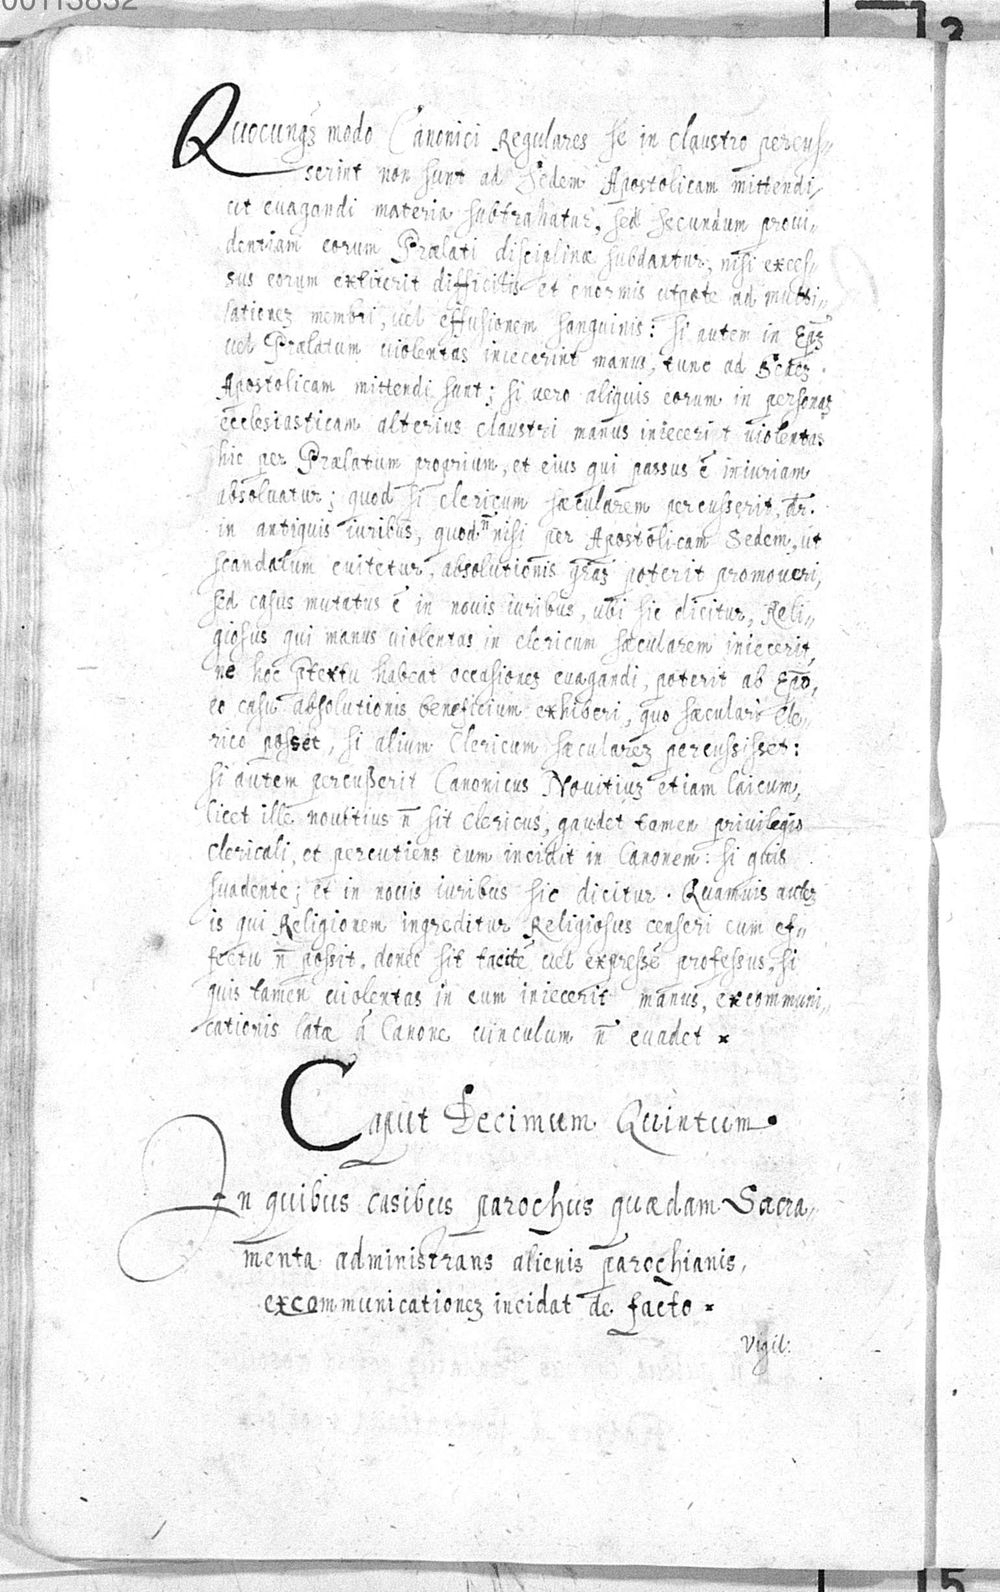 00113832
Quocunq3 modo Canonici Regulares se in claustro percus„
serint non sunt ad Sedem Apostolicam mittendi,
ut euagandi materia subtrahatur, sed secundum proui„
dentiam eorum Prælati disciplinæ subdantur, nisi exces„
sus eorum extiterit difficilis et enormis utpote ad mutti„
lationez membri, uel effusionem sanguinis: si autem in Ep̄z
uel Prælatum uiolentas iniecerint manus, tunc ad Sedez
Apostolicam mittendi sunt; si uero aliquis eorum in personaz
ecclesiasticam alterius claustri manus iniecerit uiolentas
hic per Prælatum proprium, et eius qui passus ē iniuriam
absoluatur; quod si clericum sæcularem percusserit, dr̄.
in antiquis iuribus, quod n̄ nisi per Apostolicam Sedem, ut
scandalum euitetur, absolutionis gr̄az poterit promoueri,
sed casus mutatus ē in nouis iuribus, ubi sic dicitur, Reli„
giosus qui manus uiolentas in clericum sæcularem iniecerit,
ne hoc p̄textu habeat occasionez euagandi, poterit ab Ep̄o,
eo casu absolutionis beneficium exhiberi, quo sæculari Cle„
rico posset, si alium Clericum sæcularez percussisset:
si autem percusserit Canonicus Nouitiuz etiam laicum,
licet ille nouitius n̄ sit clericus, gaudet tamen priuilegio
clericali, et percutiens eum incidit in Canonem: si quis
suadente; et in nouis iuribus sic dicitur. Quamuis autez
is qui Religionem ingreditur Religiosus censeri cum ef„
fectu n̄ possit, donec sit tacitè uel expressè professus, si
quis tamen uiolentas in eum iniecerit manus, excommuni„
cationis latæ à Canone uinculum n̄ euadet
Caput Decimum Quintum.
In quibus casibus parochus quædam Sacra„
menta administrans alienis parochianis,
excommunicationez incidat de facto
Vigil:
5